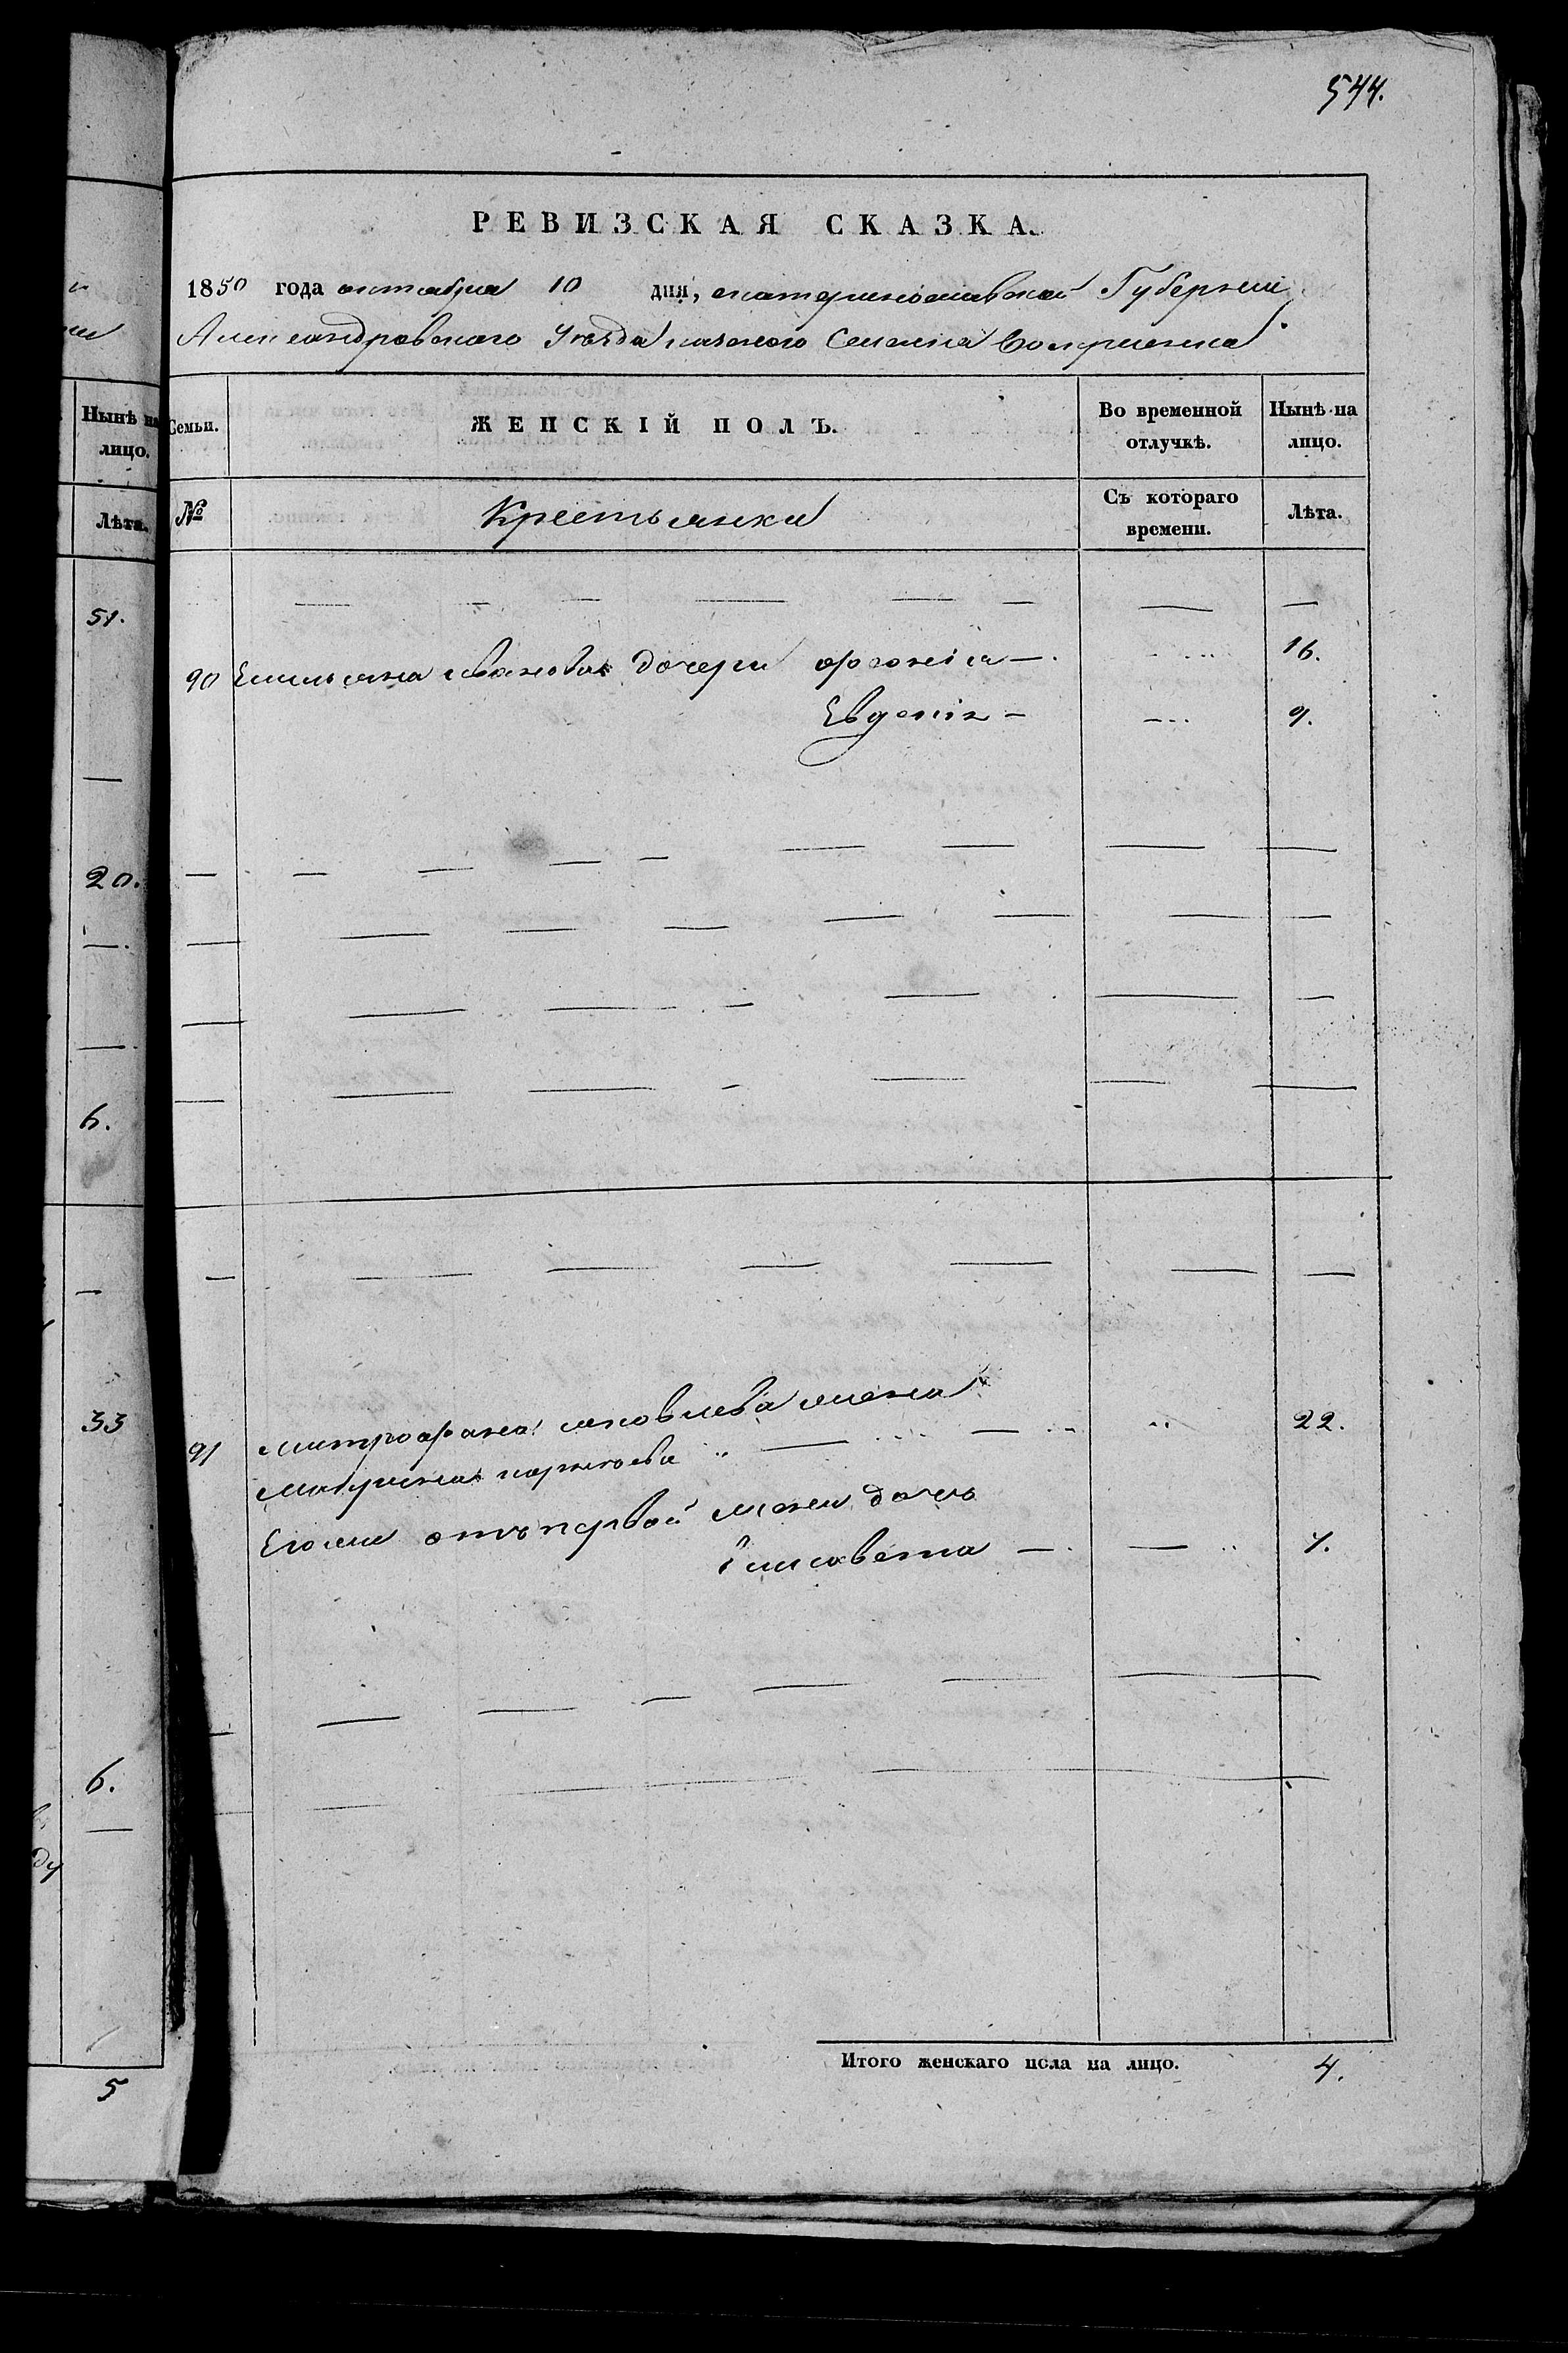 544.
РЕВИЗСКАЯ СКАЗКА.
1850 года октября 10 дня, екатеринославской Губернии
Александровского Уезда казеного Селения
Семьи. ЖЕНСКІЙ ПОЛЪ. Во временной отлучкѣ. Нынѣ на лицо.
№ Крестьянки Съ котораго времени. Лѣта.
90 Емильяна иванова дочери офонія — 16.
Евдокія — 9.
91 митрофана яковлева жена
22.
Его же отъ первой жени дочь
Елисавета —
Итого женскаго пола на лицо. 4.
Нынѣ на
лицо.
Лѣта.
51.
20.
6.
33
6.
ду
5